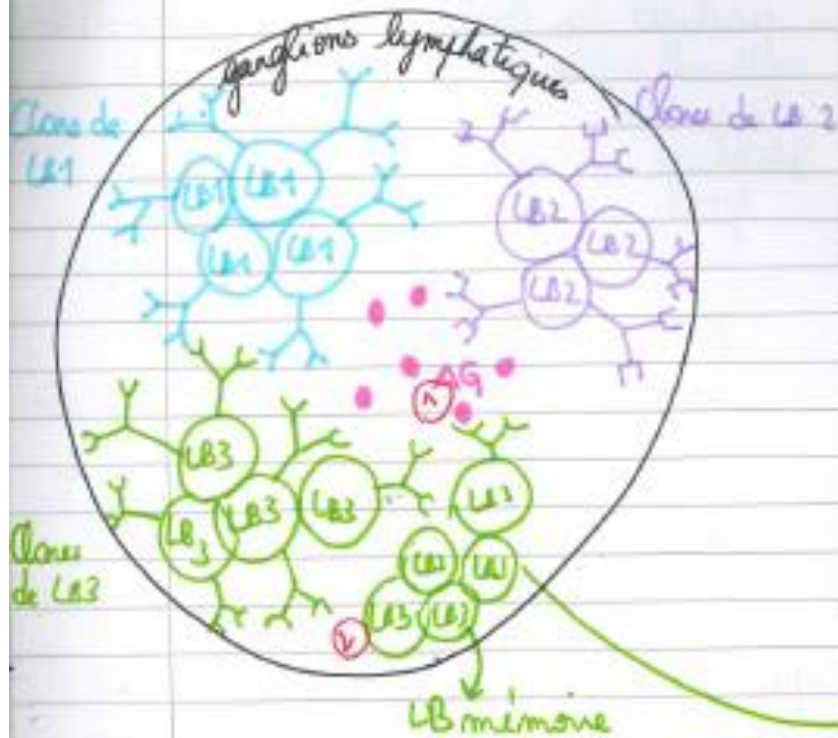 ganglions lymphatiques
Clone de
LB1
Clones de LB 2
LB1 LB1
LB1 LB1
LB2
LB2
LB2
AG
1
LB3
LB3
LB3
LB3
LB3
LB3
Clones
de LB3
LB mémoire